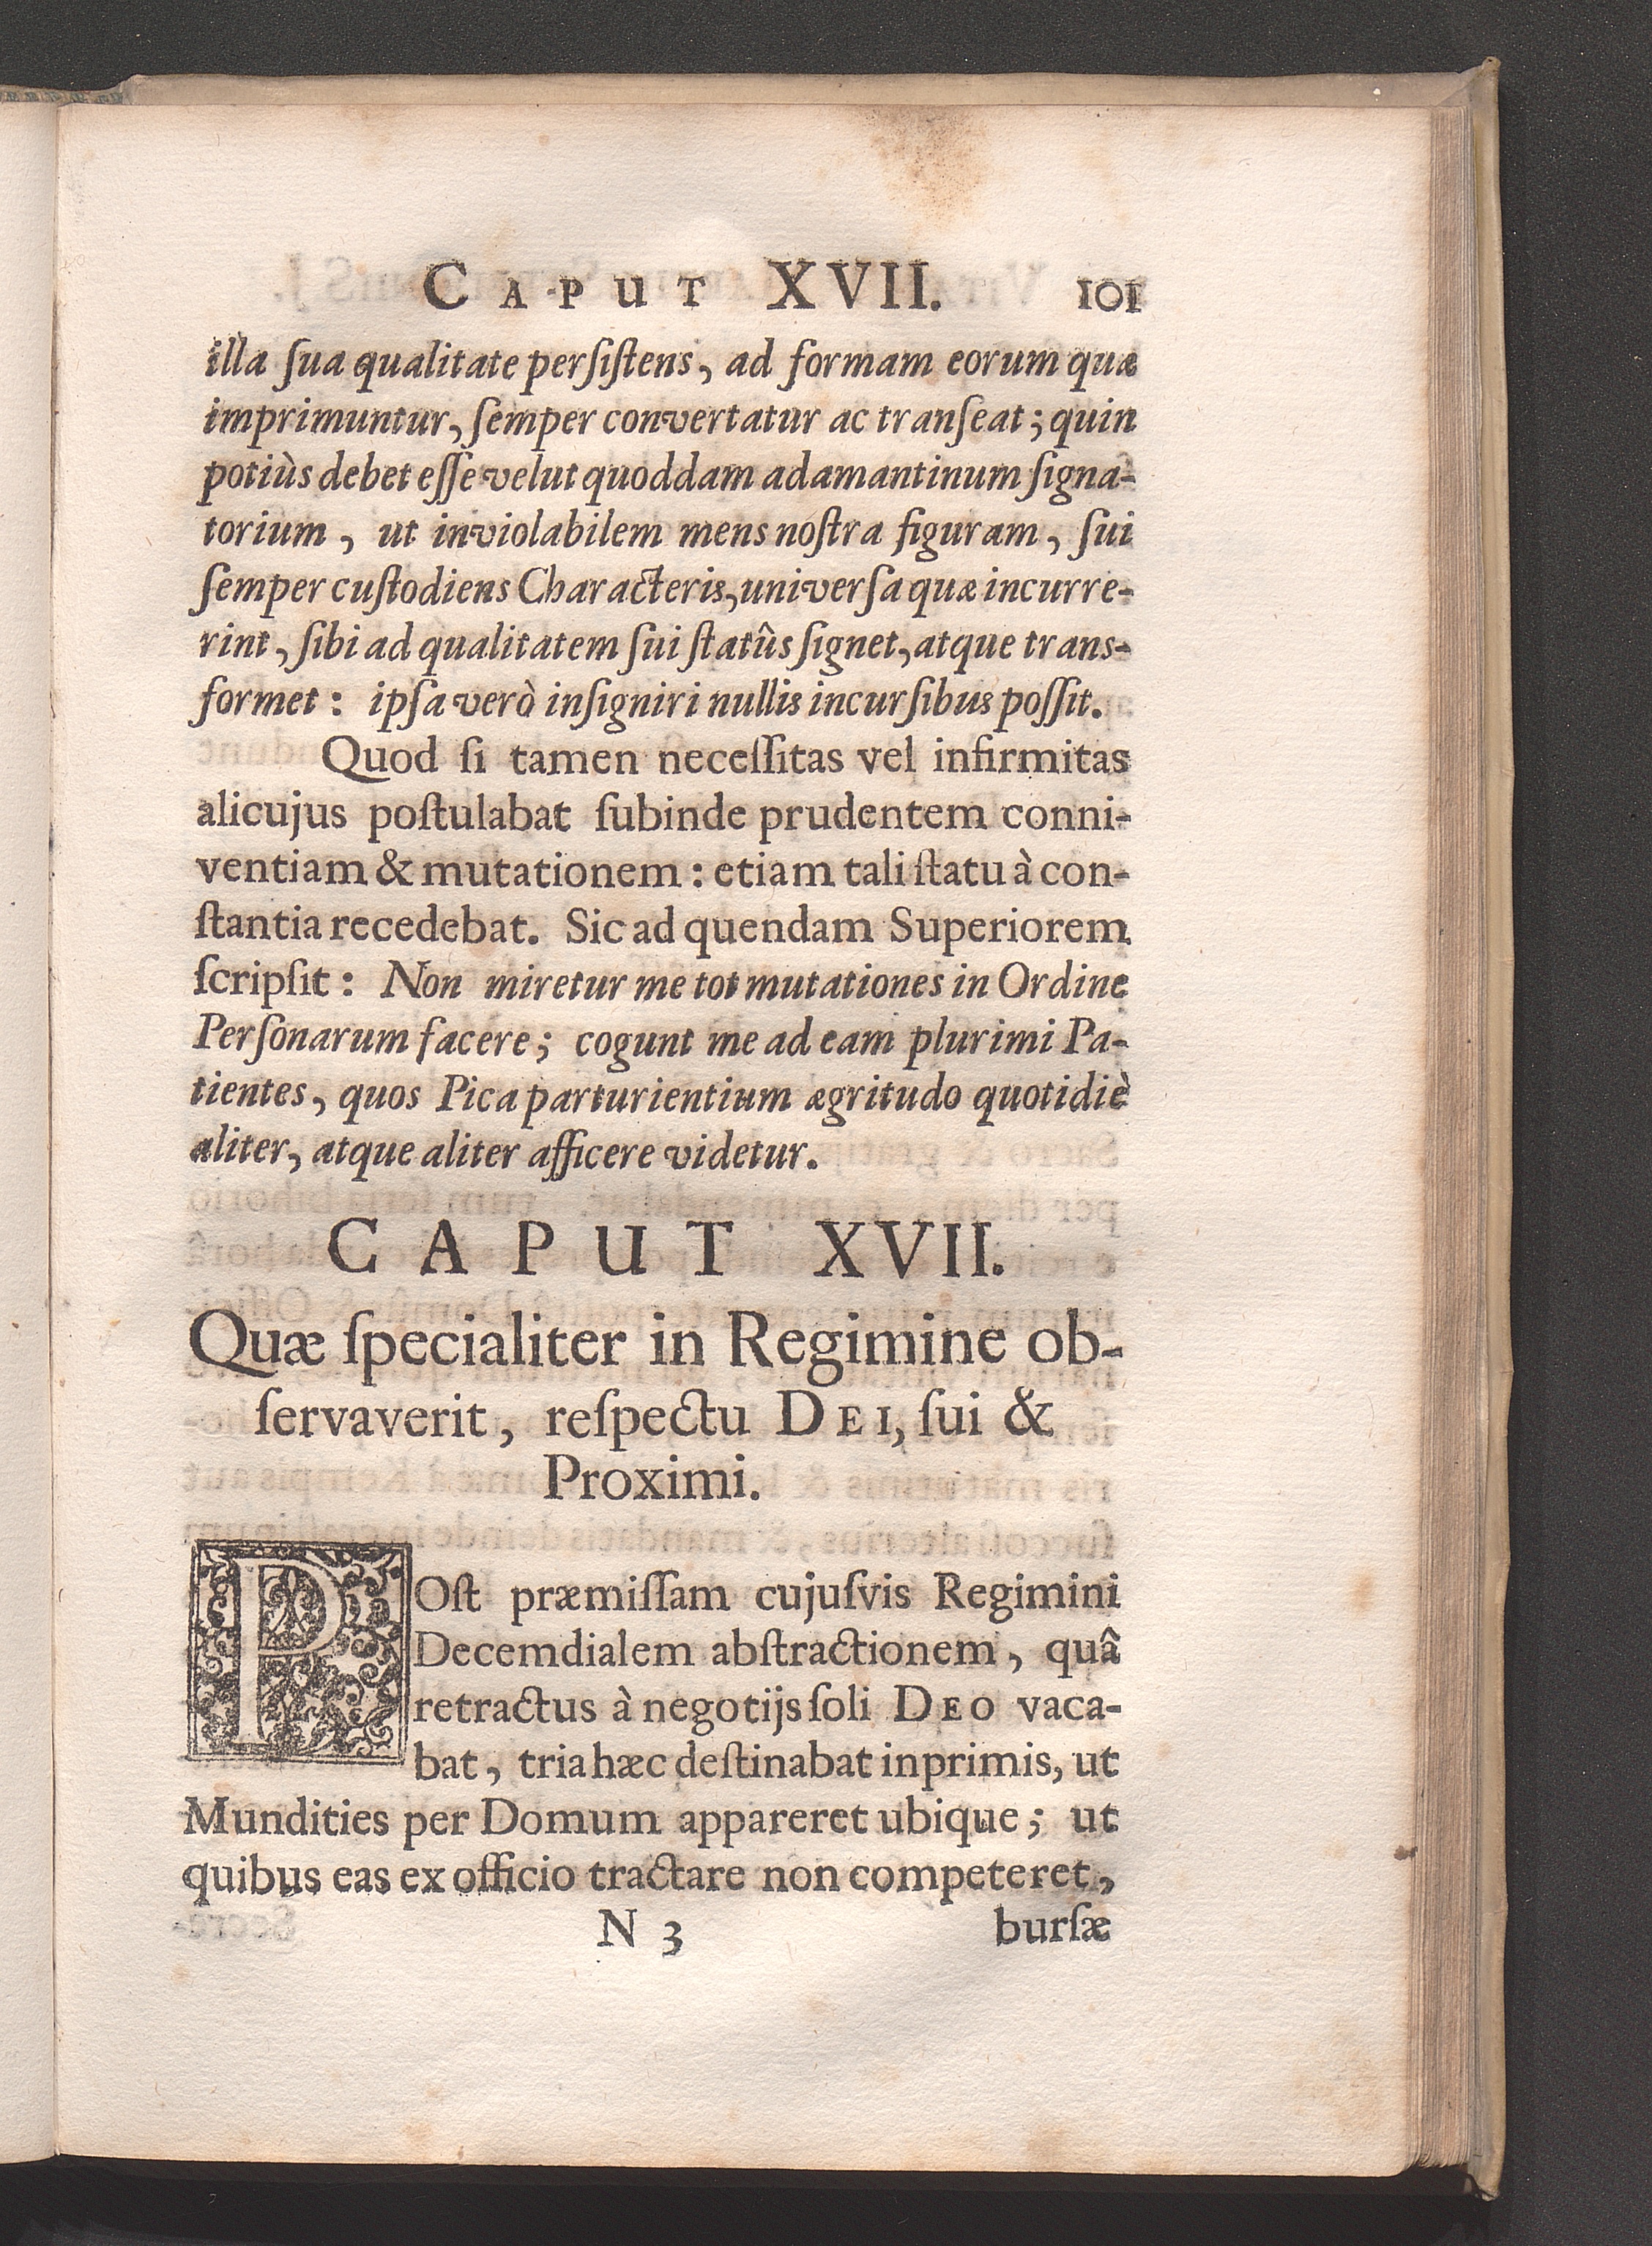 CAPUT XVII. 101
illa ſua qualitate perſiſtens, ad formam eorum quæ
imprimuntur, ſemper convertatur ac tranſeat; quin
potiùs debet eſſe velut quoddam adamantinum ſigna-
torium, ut inviolabilem mens noſtra figuram, ſui
ſemper cuſtodiens Characteris, univerſa quæ incurre-
rint, ſibi ad qualitatem ſui ſtatûs ſignet, atque trans-
formet: ipſa verò inſigniri nullis incurſibus poſſit.
Quod ſi tamen neceſſitas vel infirmitas
alicujus poſtulabat ſubinde prudentem conni-
ventiam & mutationem: etiam tali ſtatu à con-
ſtantia recedebat. Sic ad quendam Superiorem
ſcripſit: Non miretur me tot mutationes in Ordine
Perſonarum facere; cogunt me ad eam plurimi Pa-
tientes, quos Pica parturientium ægritudo quotidiè
aliter, atque aliter afficere videtur.
CAPUT XVII.
Quæ ſpecialiter in Regimine ob-
ſervaverit, reſpectu DEI, ſui &
Proximi.
POſt præmiſſam cujuſvis Regimini
Decemdialem abſtractionem, quâ
retractus à negotijs ſoli DEO vaca-
bat, tria hæc deſtinabat inprimis, ut
Mundities per Domum appareret ubique; ut
quibus eas ex officio tractare non competeret,
N 3 burſæ